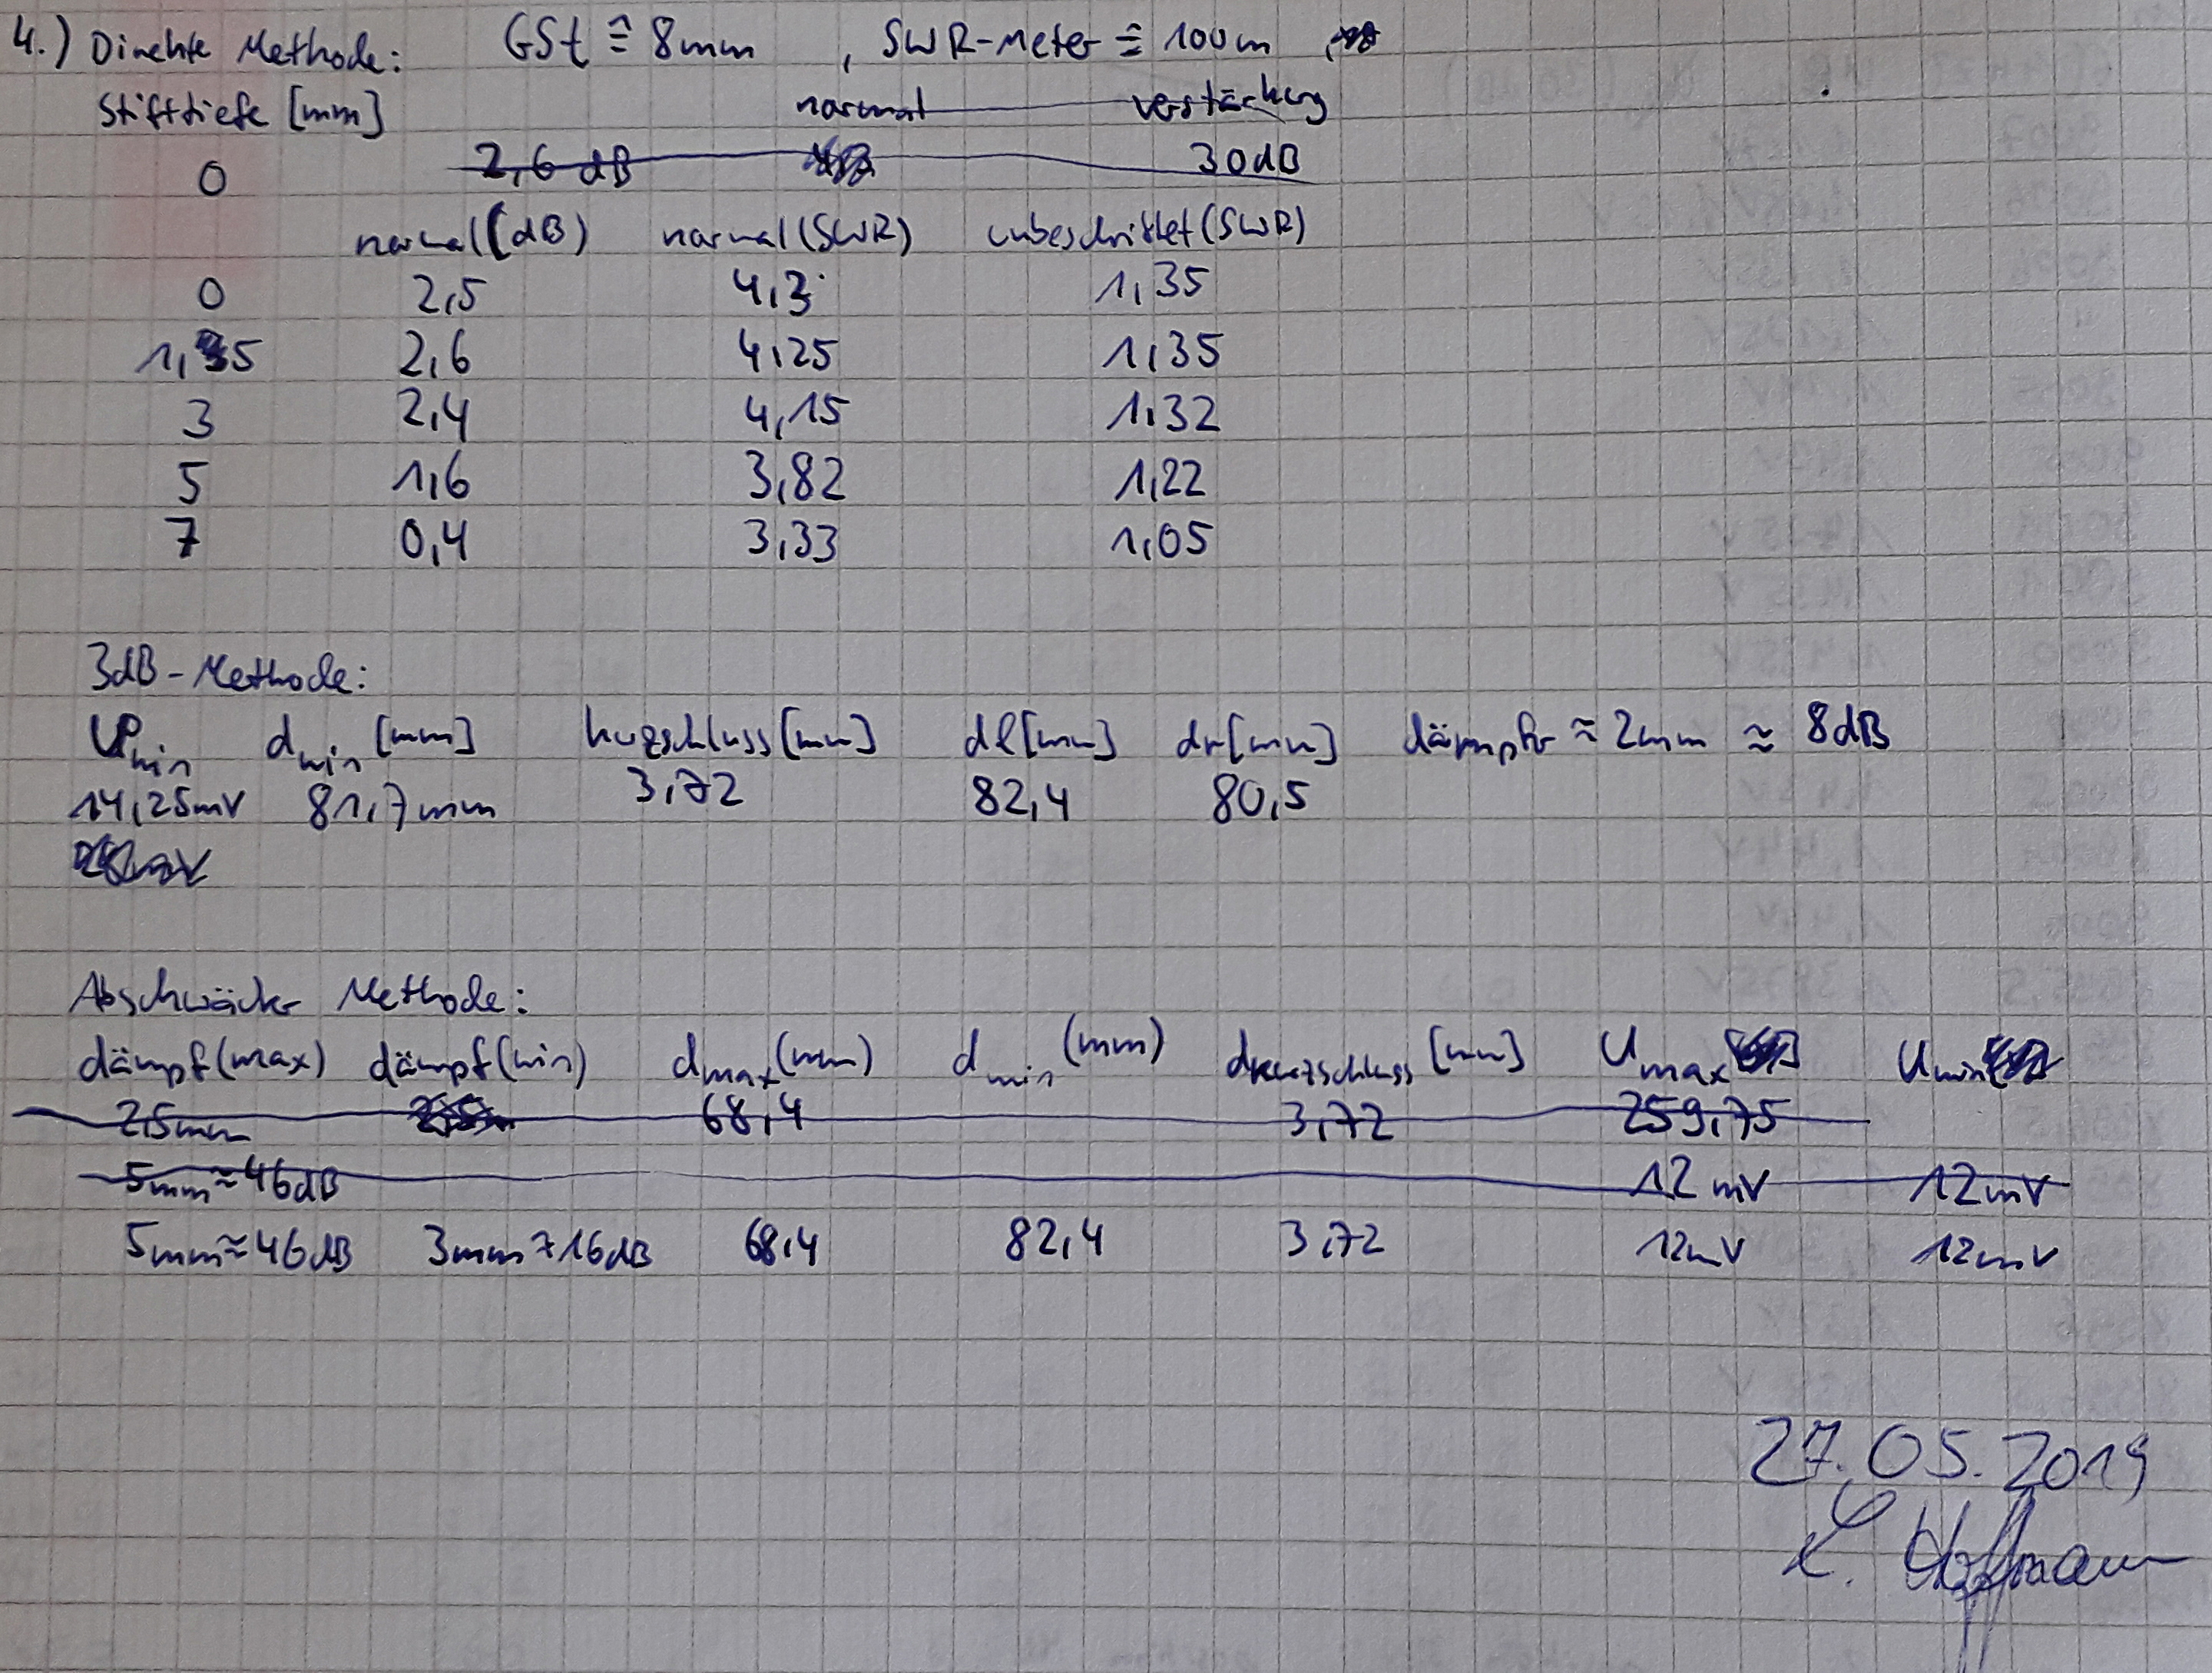 4.) Direkte Methode: GSt ≙ 8mm , SWR-Meter ≙ 100m
Stifttiefe [mm] normal verstärkung
0 2,6 dB 30dB
normal (dB) normal (SWR) unbeschriftet (SWR)
0 2,5 4,3 1,35
1,5 2,6 4,25 1,35
3 2,4 4,15 1,32
5 1,6 3,82 1,22
7 0,4 3,33 1,05
3dB-Methode:
Umin dmin [mm] kurzschluss [mm] dl [mm] dr [mm] dämpfer ≈ 2mm ≈ 8dB
14,25mV 81,7mm 3,72 82,4 80,5
Abschwächer Methode:
dämpf (max) dämpf (min) dmax (mm) dmin (mm) dkurzschluss [mm] Umax Umin
2,5mm 68,4 3,72 259,75
5mm ≈ 46dB 12mV 12mV
5mm ≈ 46dB 3mm 16dB 68,4 82,4 3,72 12mV 12mV
27.05.2019
L. Hoffmann